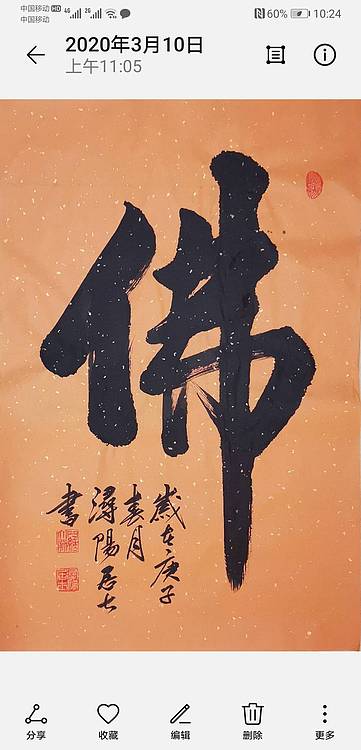 中国移动 HD 4G 2G 60% 10:24
中国移动
2020年3月10日
上午11:05
佛
歲在庚子
春月
潯陽居士
書
分享 收藏 编辑 删除 更多